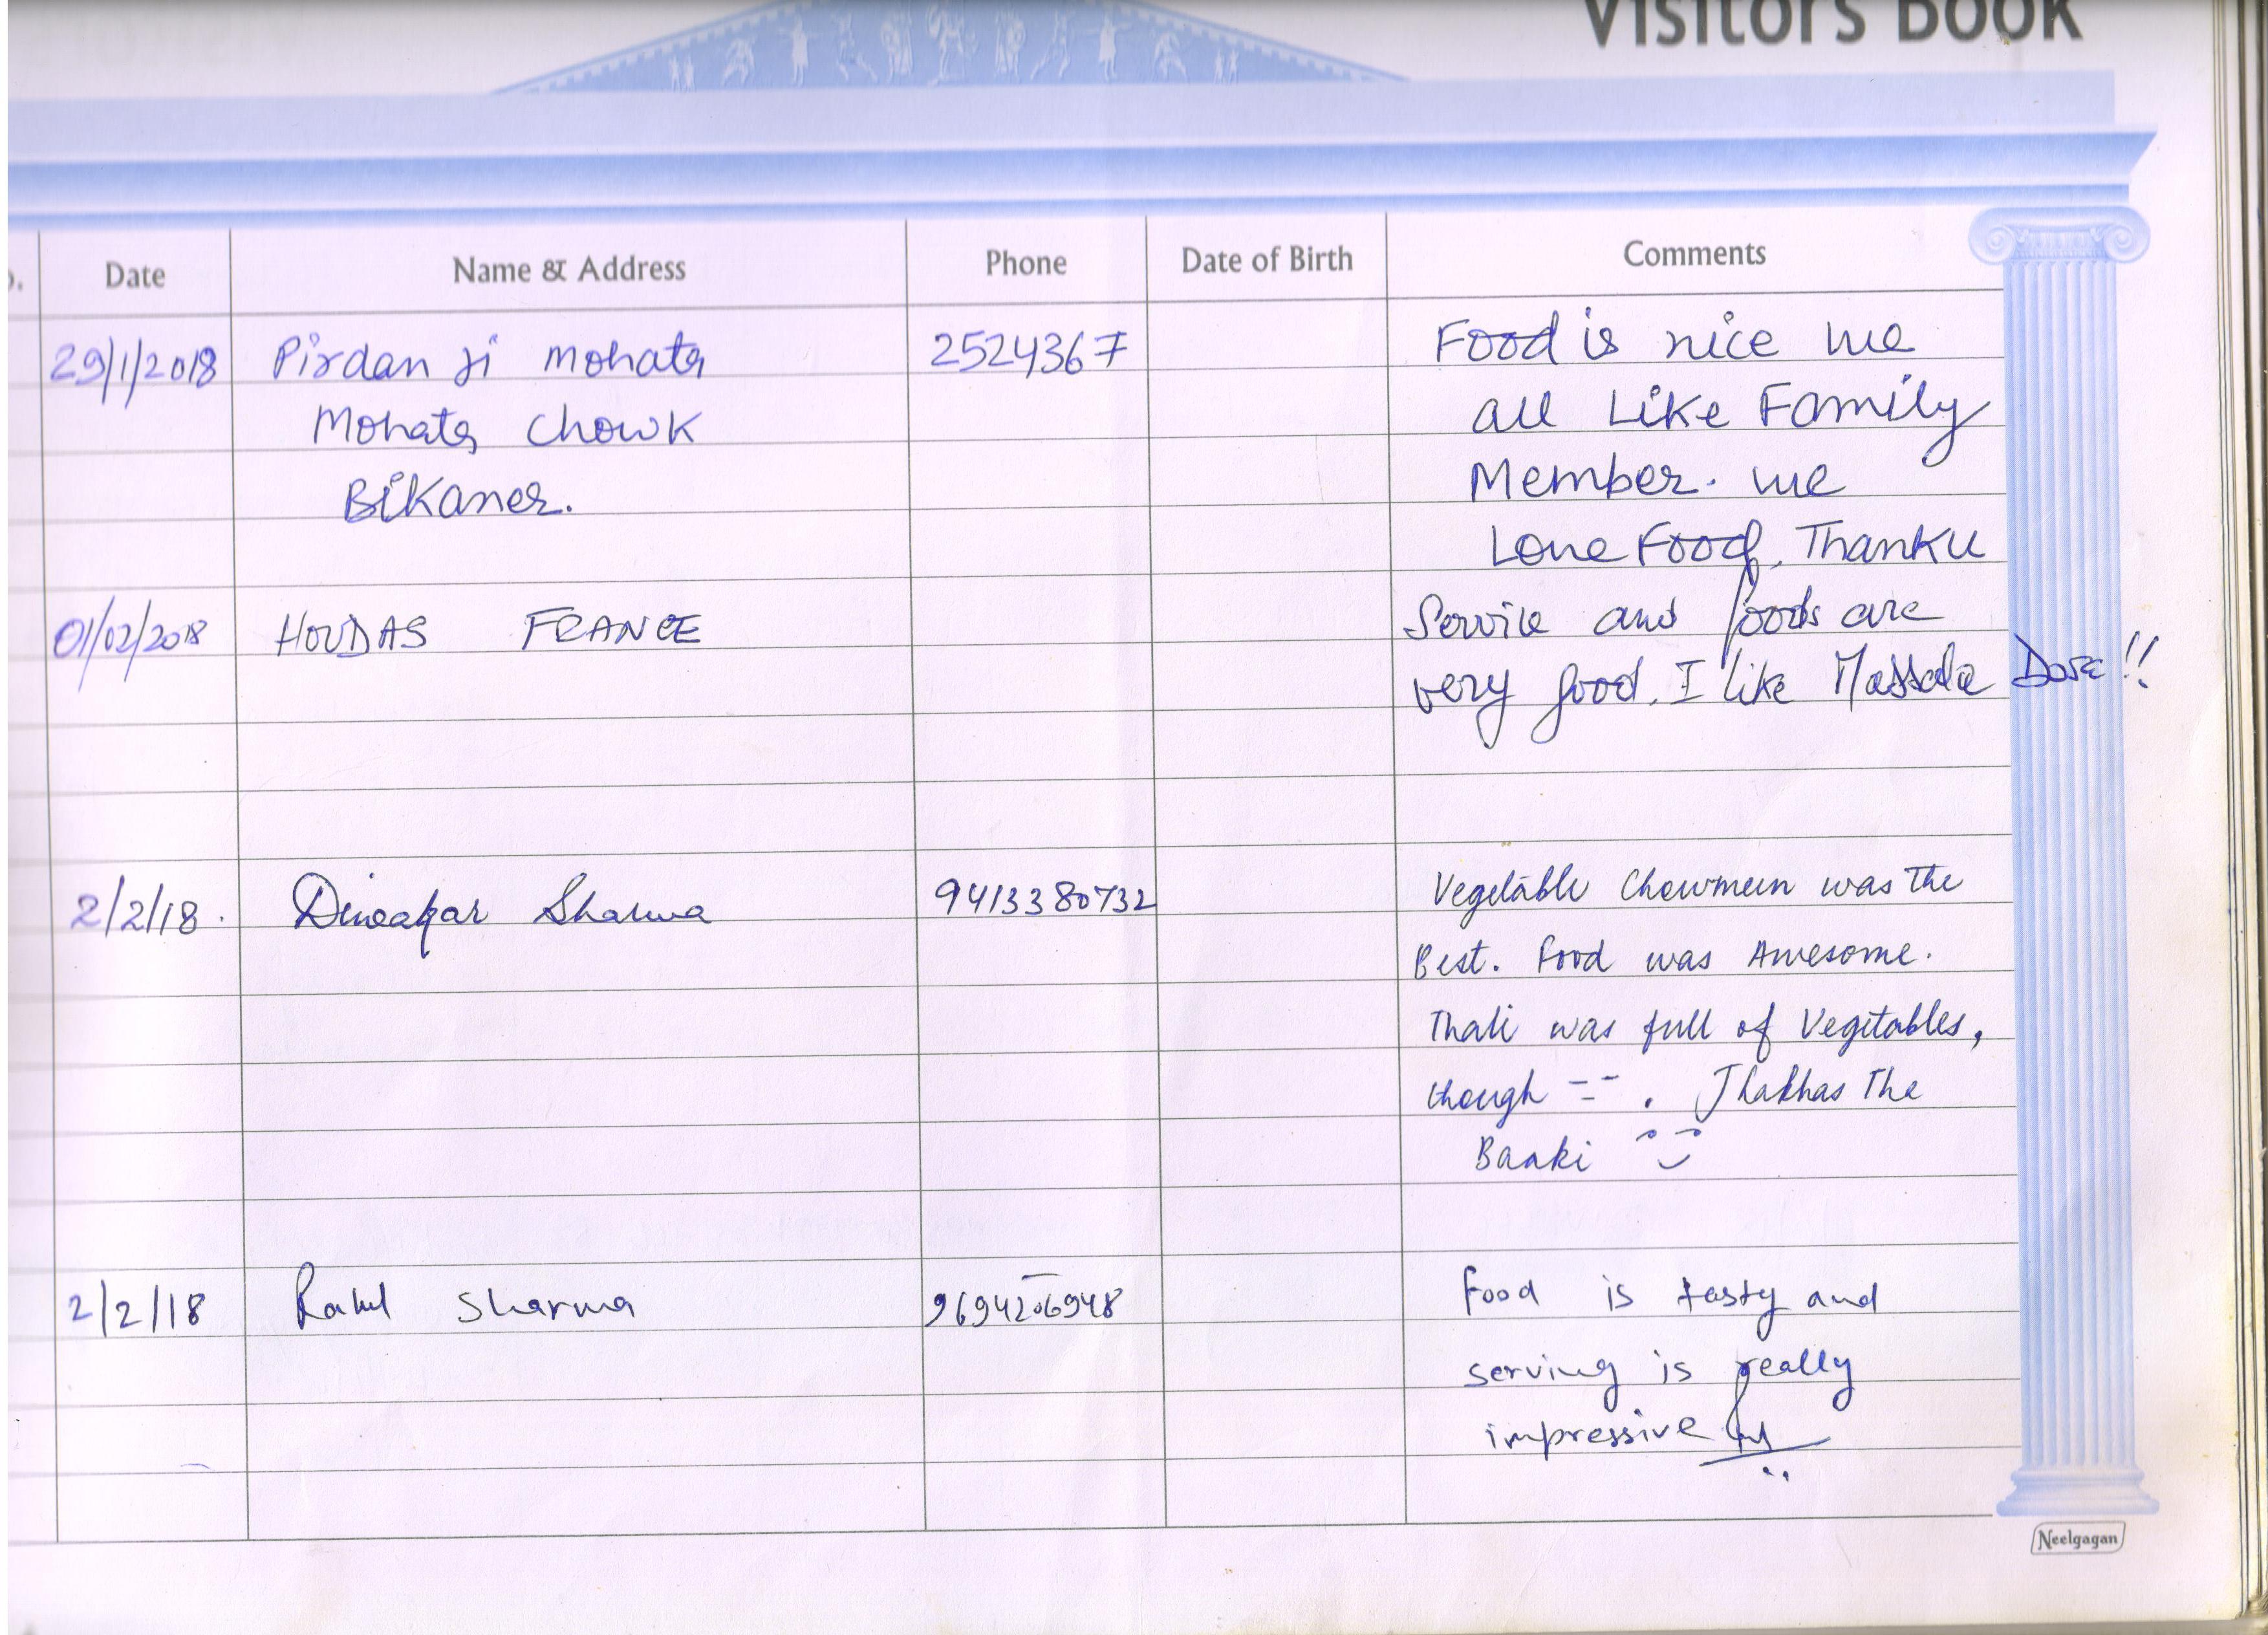 Visitors Book
Date Name & Address Phone Date of Birth Comments
29/1/2018 Pirdan ji Mohata 2524367 Food is nice we
Mohata Chowk all Like Family
Bikaner. Member. we
Love Food, Thanku
01/02/2018 HOUDAS FRANCE Service and foods are
very good. I like Massala Dosa!!
2/2/18. Sharma 9413380732 Vegetable Chowmein was the
Best. Food was Awesome.
Thali was full of Vegetables,
though --- . Jhakhas The
Baaki
2/2/18 Rahul Sharma 9694206948 food is tasty and
serving is really
impressive
Neelgagan